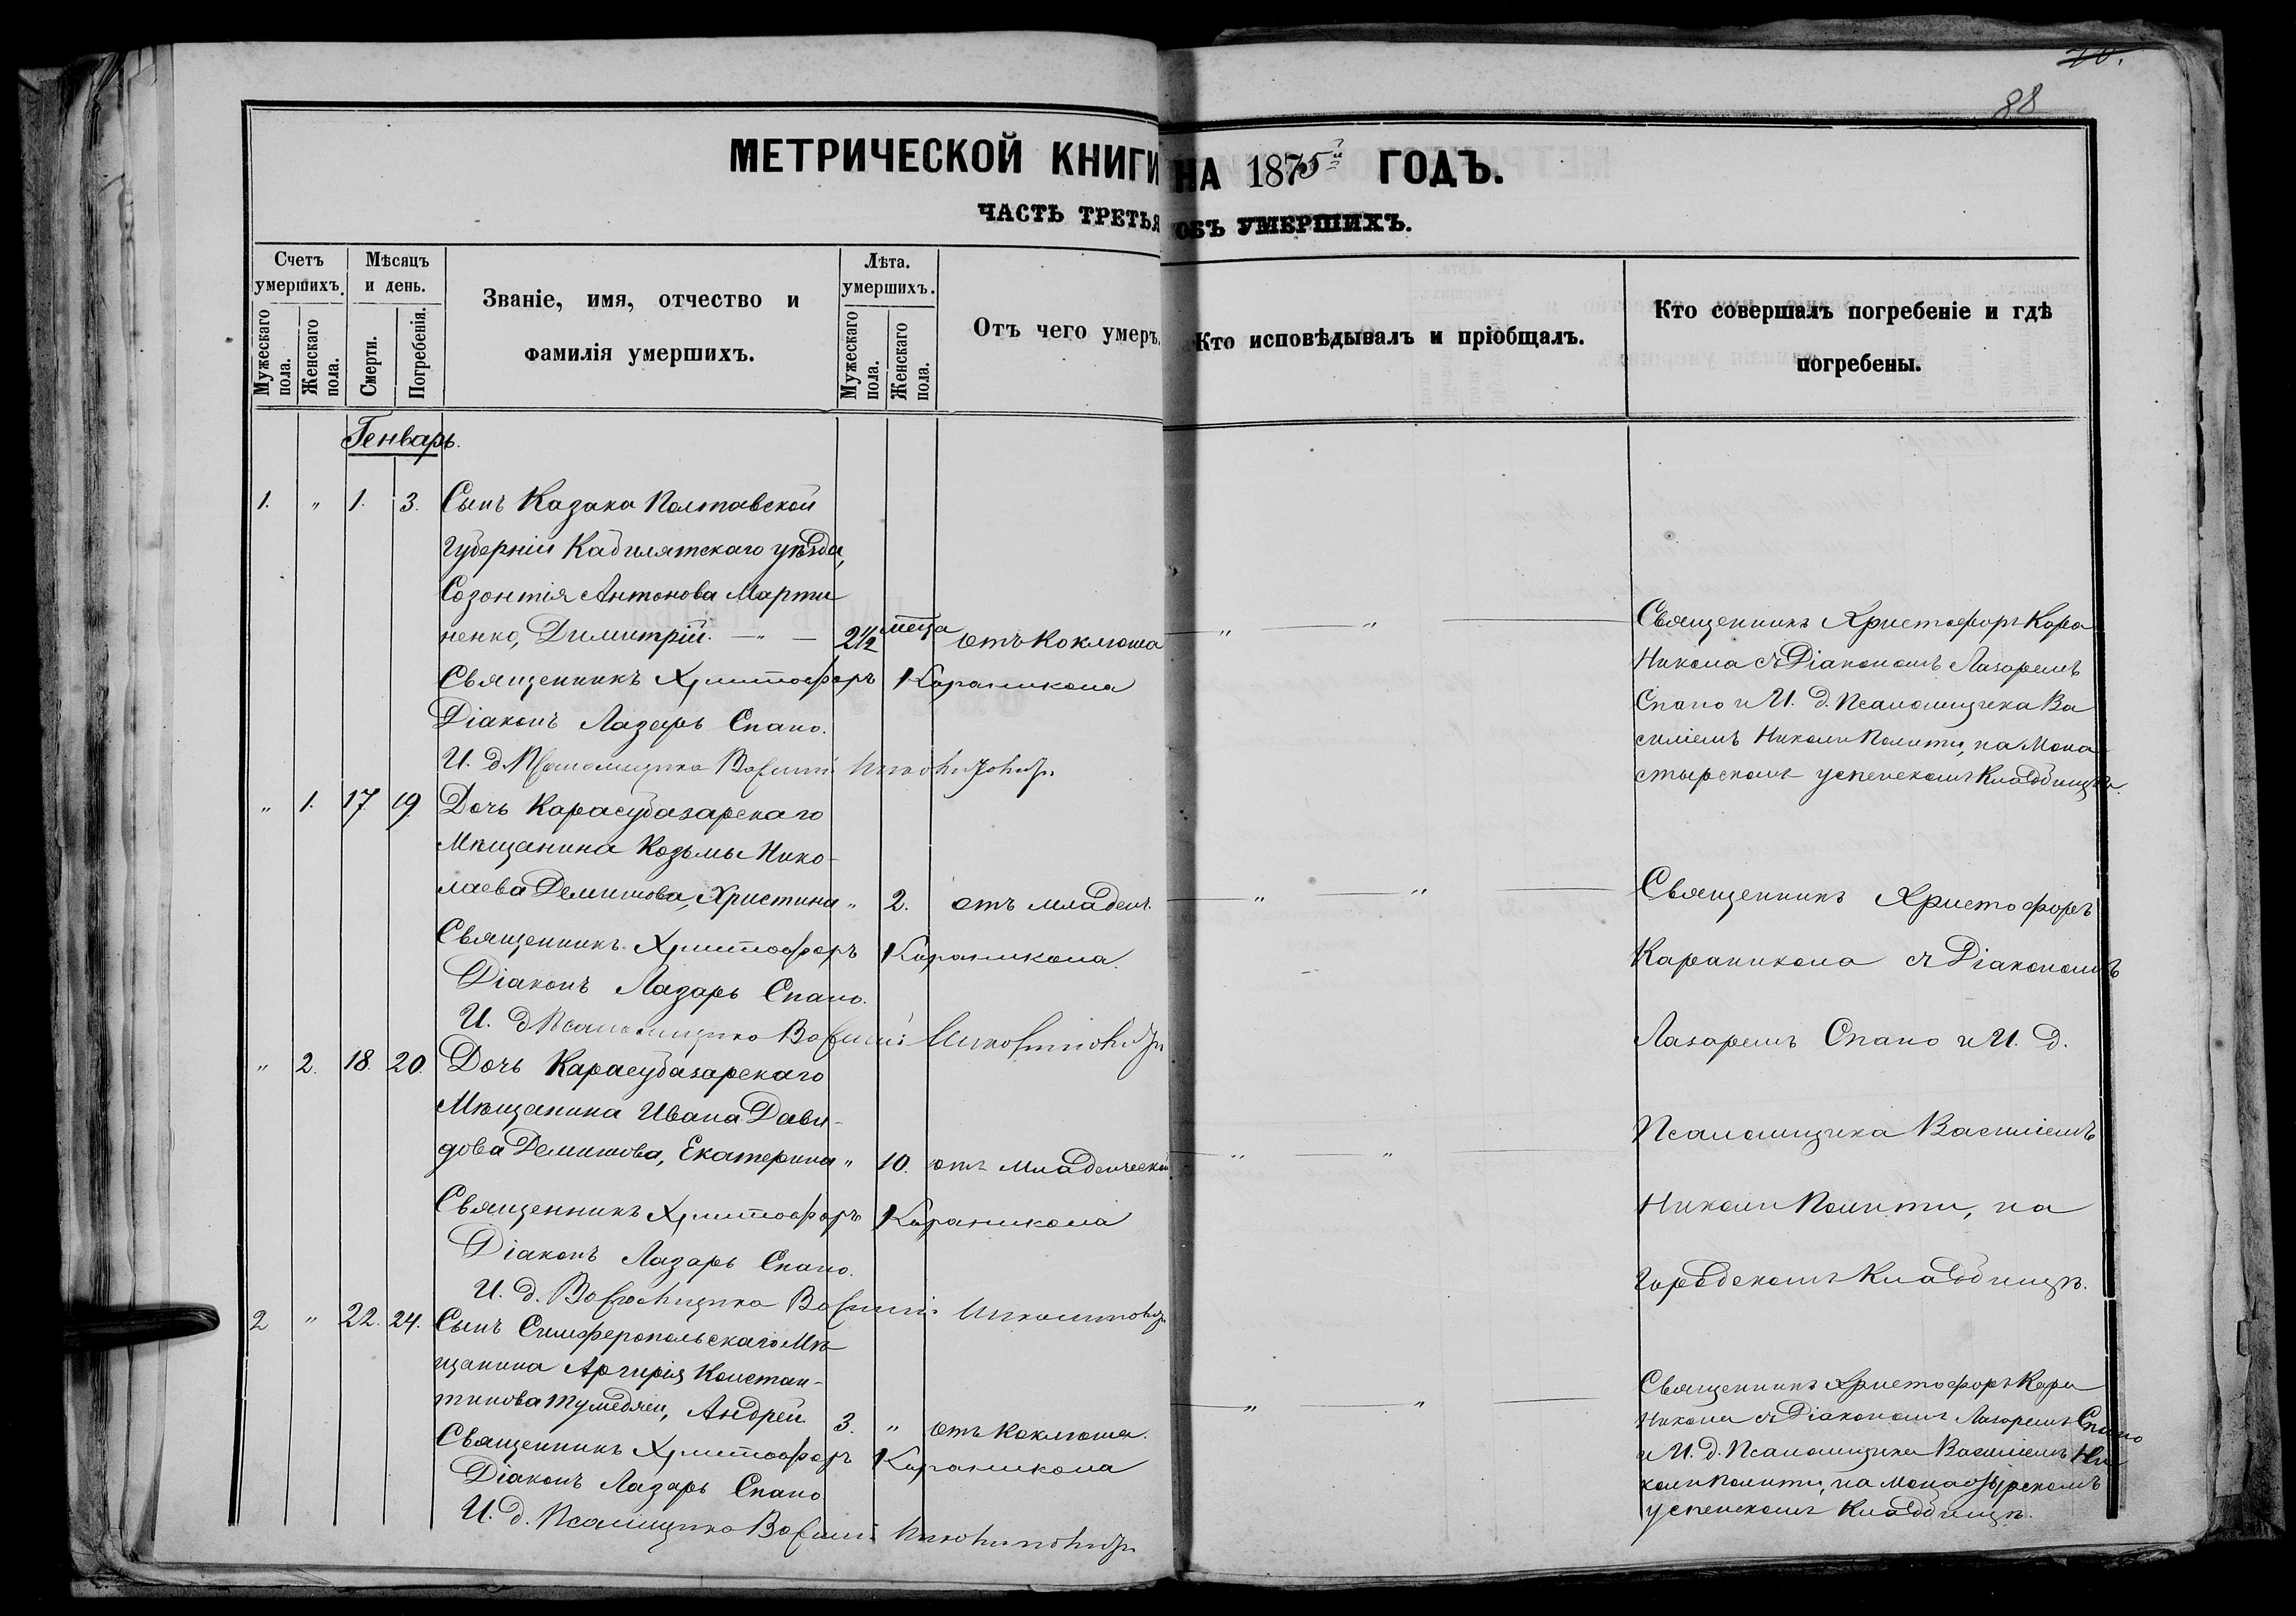 70.
88
МЕТРИЧЕСКОЙ КНИГИ НА 1875й ГОДЪ.
ЧАСТЬ ТРЕТЬЯ ОБЪ УМЕРШИХЪ.
Счетъ умершихъ.
Мужескаго пола.
Женскаго пола.
Мѣсяцъ и день.
Смерти.
Погребенія.
Званіе, имя, отчество и
фамилія умершихъ.
Лѣта умершихъ.
Мужескаго пола.
Женскаго пола.
Отъ чего умеръ.
Кто исповѣдывалъ и пріобщалъ.
Кто совершалъ погребеніе и гдѣ
погребены.
Генварь.
1. " 1. 3. Сынъ Казака Полтавской
Губерніи Кабилятскаго уѣзда,
Созонтія Антонова Марти
ненко, Димитрій. — " — 2½ меца отъ Коклюша " "
Священникъ Христофоръ Караникола
Діаконъ Лазарь Спано.
И. д. Псаломщика Василий
Священникъ Христофоръ Кара
Никола съ Діакономъ Лазаремъ
Спано и И. д. Псаломщика Ва
силіемъ Николи Политы, на Мона
стырскомъ успенскомъ Кладбищѣ.
" 1. 17 19. Дочь Карасубазарскаго
Мѣщанина Козьмы Нико-
лаева Демишова, Христина " 2. отъ младен. " "
Священникъ Христофоръ Караникола.
Діаконъ Лазарь Спано.
И. д. Псаломщика Василий
" 2. 18. 20. Дочь Карасубазарскаго
Мѣщанина Ивана Дави-
дова Демишова, Екатерина " 10. отъ младенческой " "
Священникъ Христофоръ Караникола
Діаконъ Лазарь Спано.
И. д. Василий
Священникъ Христофоръ
Караникола съ Діакономъ
Лазаремъ Спано и И. д.
Псаломщика Василіемъ
Николи Политы, на
Городскомъ Кладбищѣ.
2 " 22. 24. Сынъ Симферопольскаго Мѣ
щанина Аргирія Констан-
тинова Андрей 3. " отъ Коклюша. " "
Священникъ Христофоръ Караникола
Діаконъ Лазарь Спано
И. д. Псаломщика Василий
Священникъ Христофоръ Кара
Никола съ Діакономъ Лазаремъ Спано
и И. д. Псаломщика Василіемъ Ни
коли Политы, на Монастырскомъ
успенскомъ Кладбищѣ.